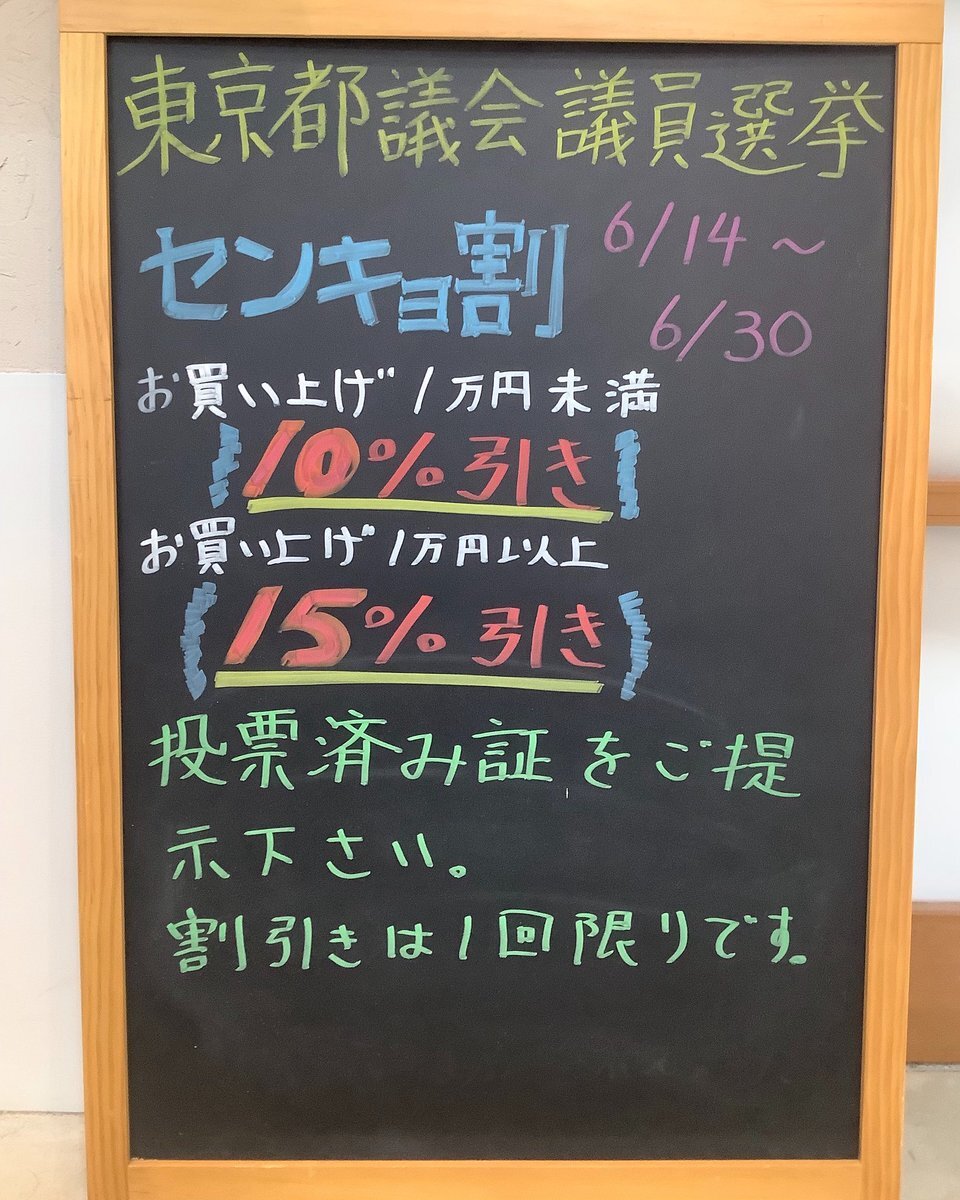 東京都議会議員選挙
センキョ割 6/14～
6/30
お買い上げ1万円未満
10%引き
お買い上げ1万円以上
15%引き
投票済み証をご提
示下さい。
割引きは1回限りです。